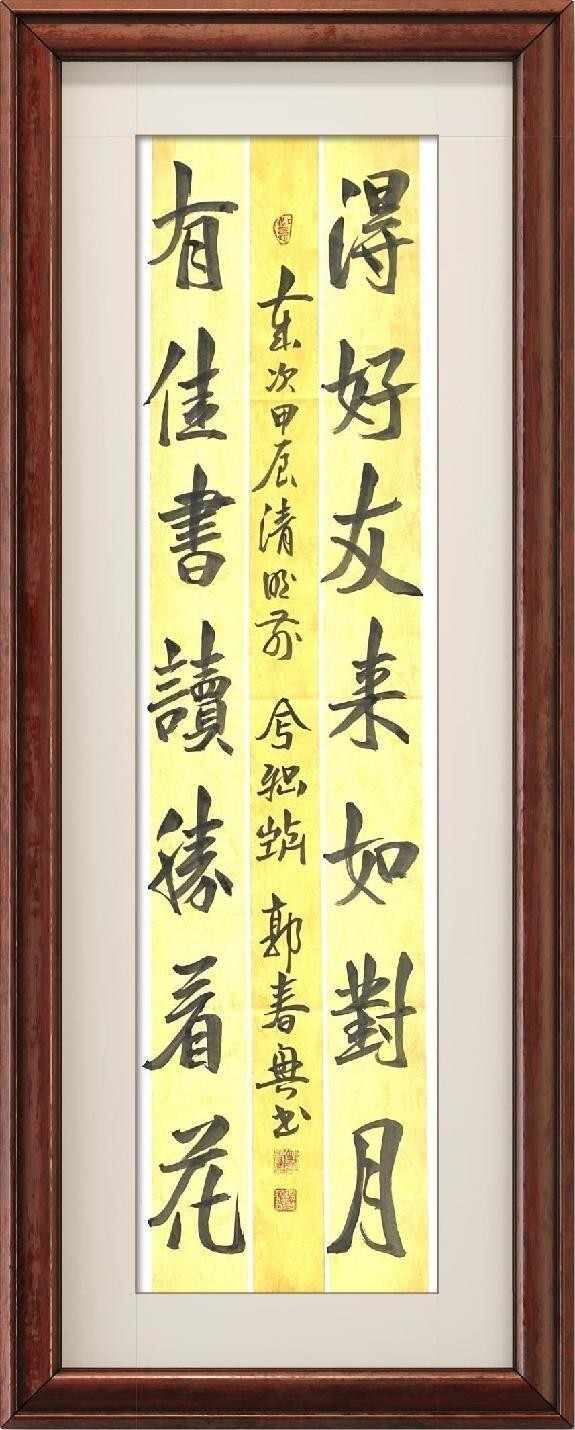 得好友来如對月
岁次甲辰清明前 兮 郭春兴书
有佳書讀勝看花